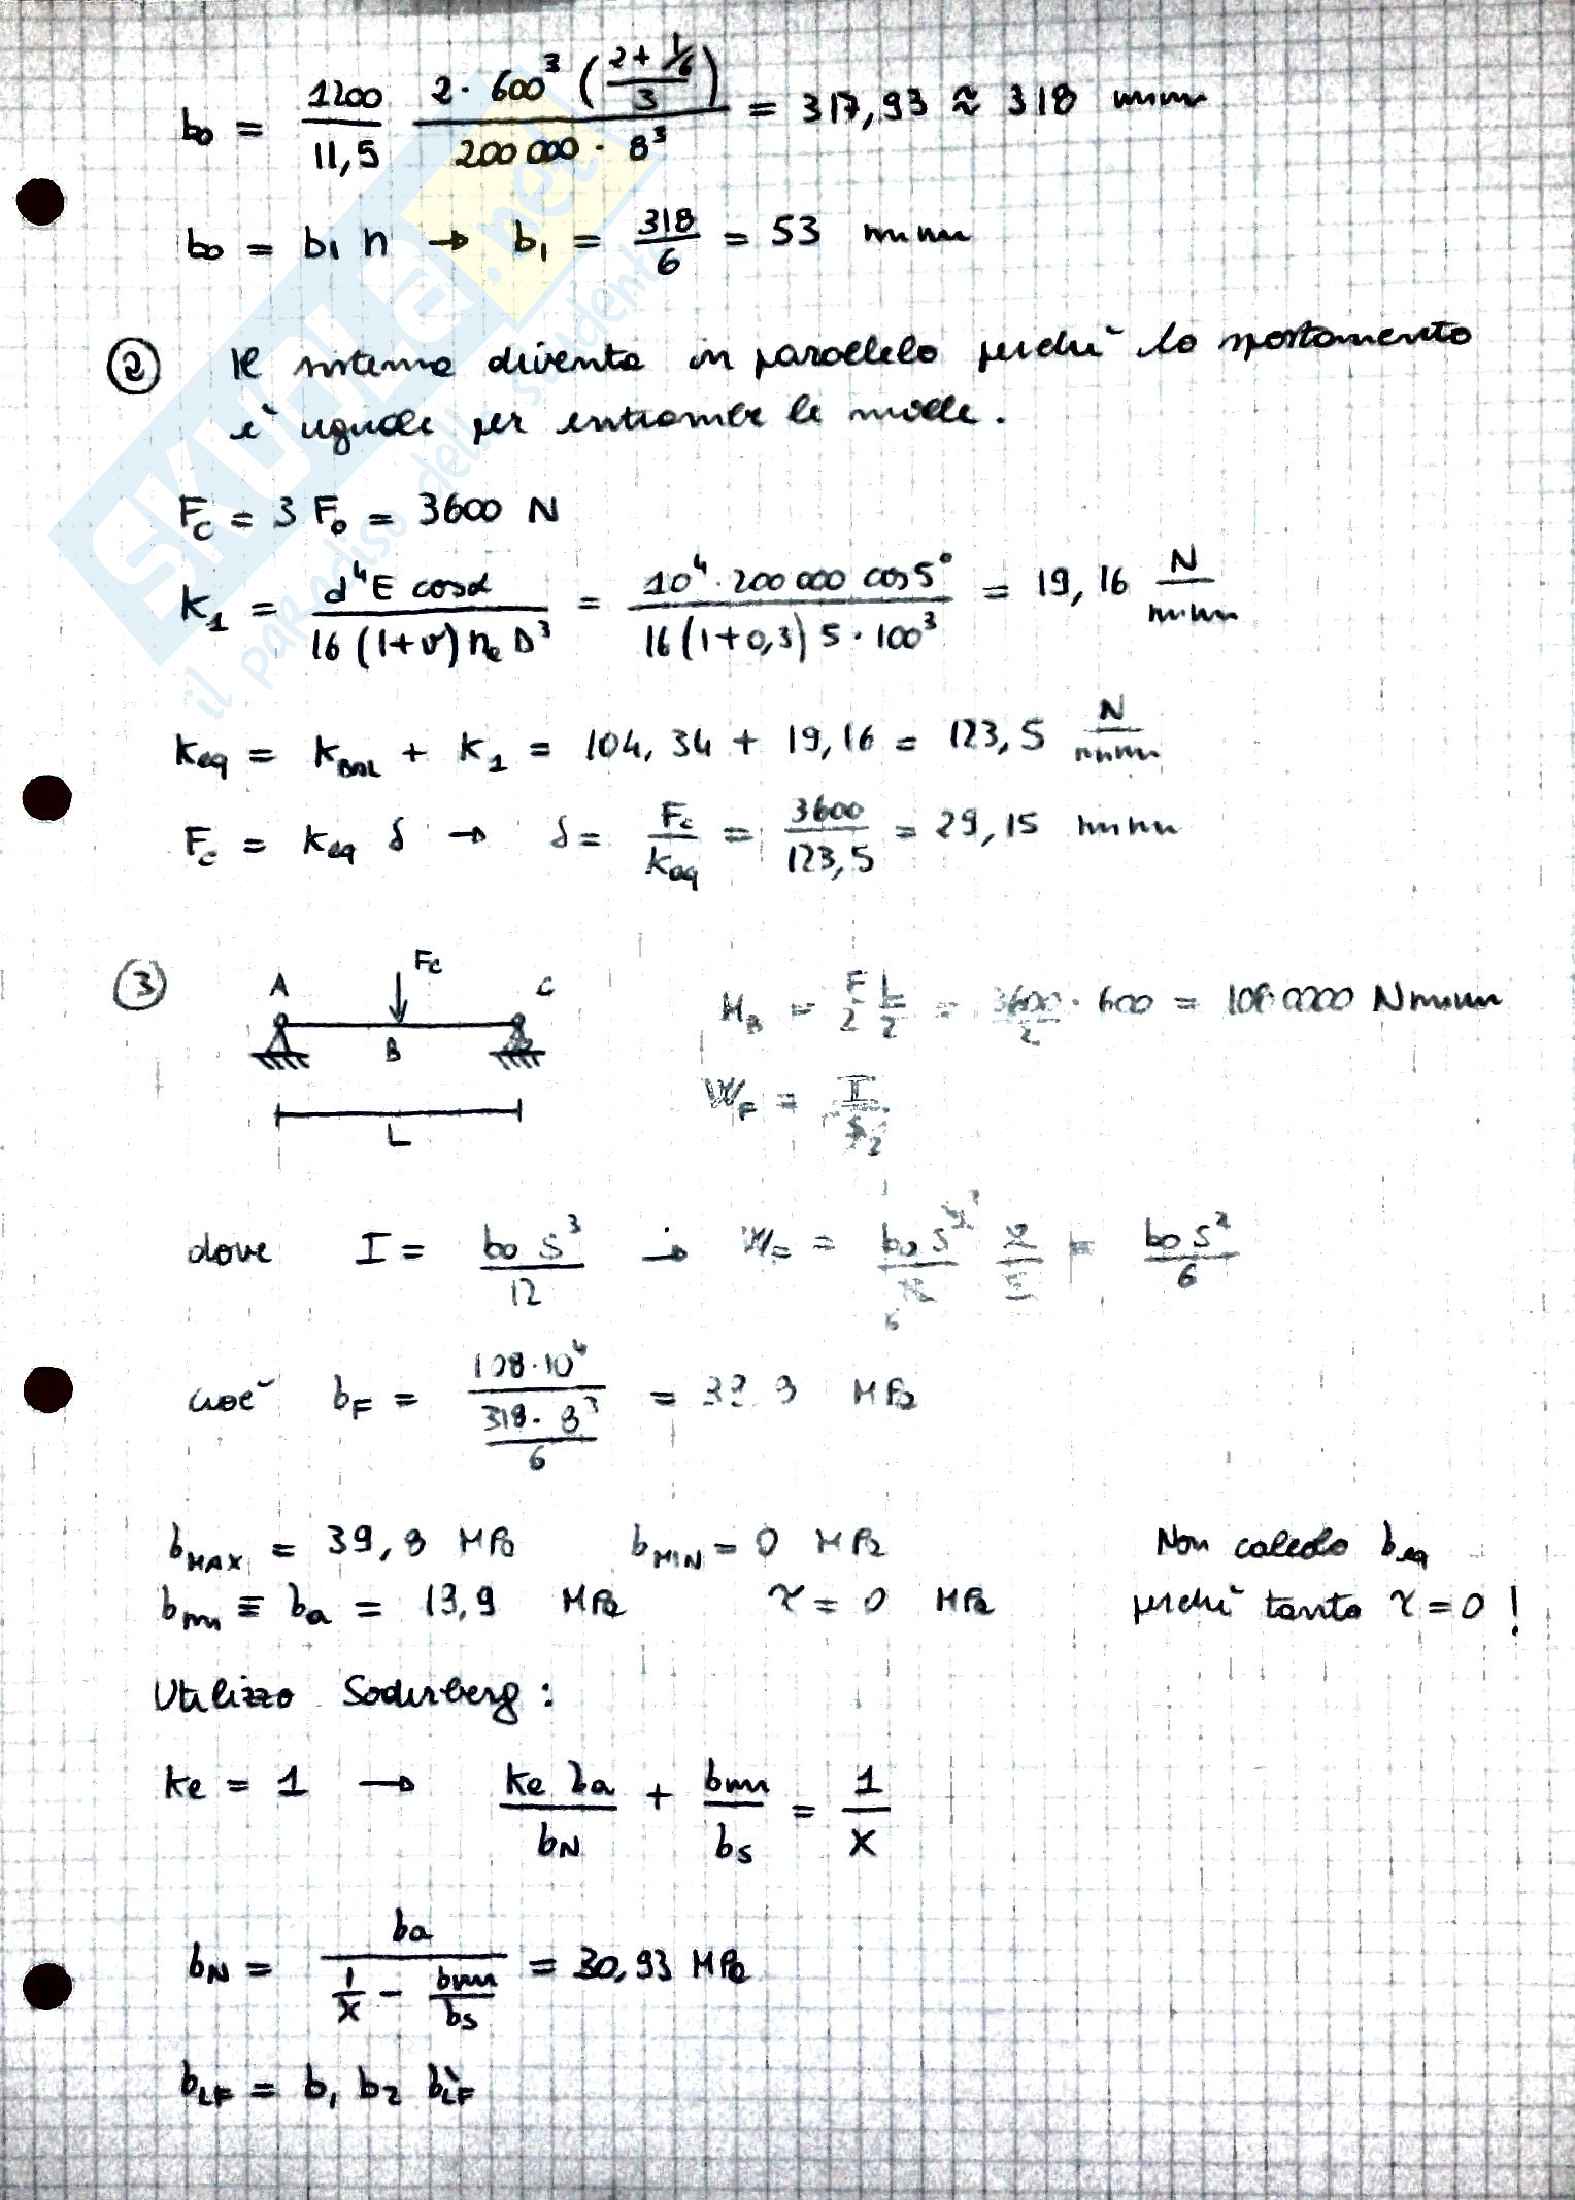 b₀ = 1200/11,5 · 2·600³ ((2+1/6)/3) / (200 000 · 8³) = 317,93 ≈ 318 mm
b₀ = b₁ n → b₁ = 318/6 = 53 mm
② Il sistema diventa in parallelo perchè lo spostamento
è uguale per entrambe le molle.
F_C = 3 F₀ = 3600 N
K₁ = d⁴ E cosα / (16 (1+ν) n_e D³) = 10⁴ · 200 000 cos 5° / (16 (1+0,3) 5 · 100³) = 19,16 N/mm
K_eq = K_BAL + K₁ = 104,34 + 19,16 = 123,5 N/mm
F_C = K_eq δ → δ = F_C/K_eq = 3600/123,5 = 29,15 mm
③ A F_C C
B
L
M_B = F/2 L/2 = 3600/2 · 600 = 1080000 Nmm
W_F = I / (s/2)
dove I = b₀ s³/12 → W_F = b₀ s³/12 2/s = b₀ s²/6
cioè b_F = 108·10⁴ / (318 · 8³ / 6) = MPa
b_MAX = 39,8 MPa b_MIN = 0 MPa Non calcolo b_eq
b_m ≡ b_a = 19,9 MPa τ = 0 MPa perchè tanto τ = 0 !
Utilizzo Soderberg :
Ke = 1 → Ke b_a / b_N + b_m / b_s = 1/X
b_N = b_a / (1/X − b_m/b_s) = 30,93 MPa
b_LF = b₁ b₂ b'_LF
SKUOLA.net
il paradiso dello studente